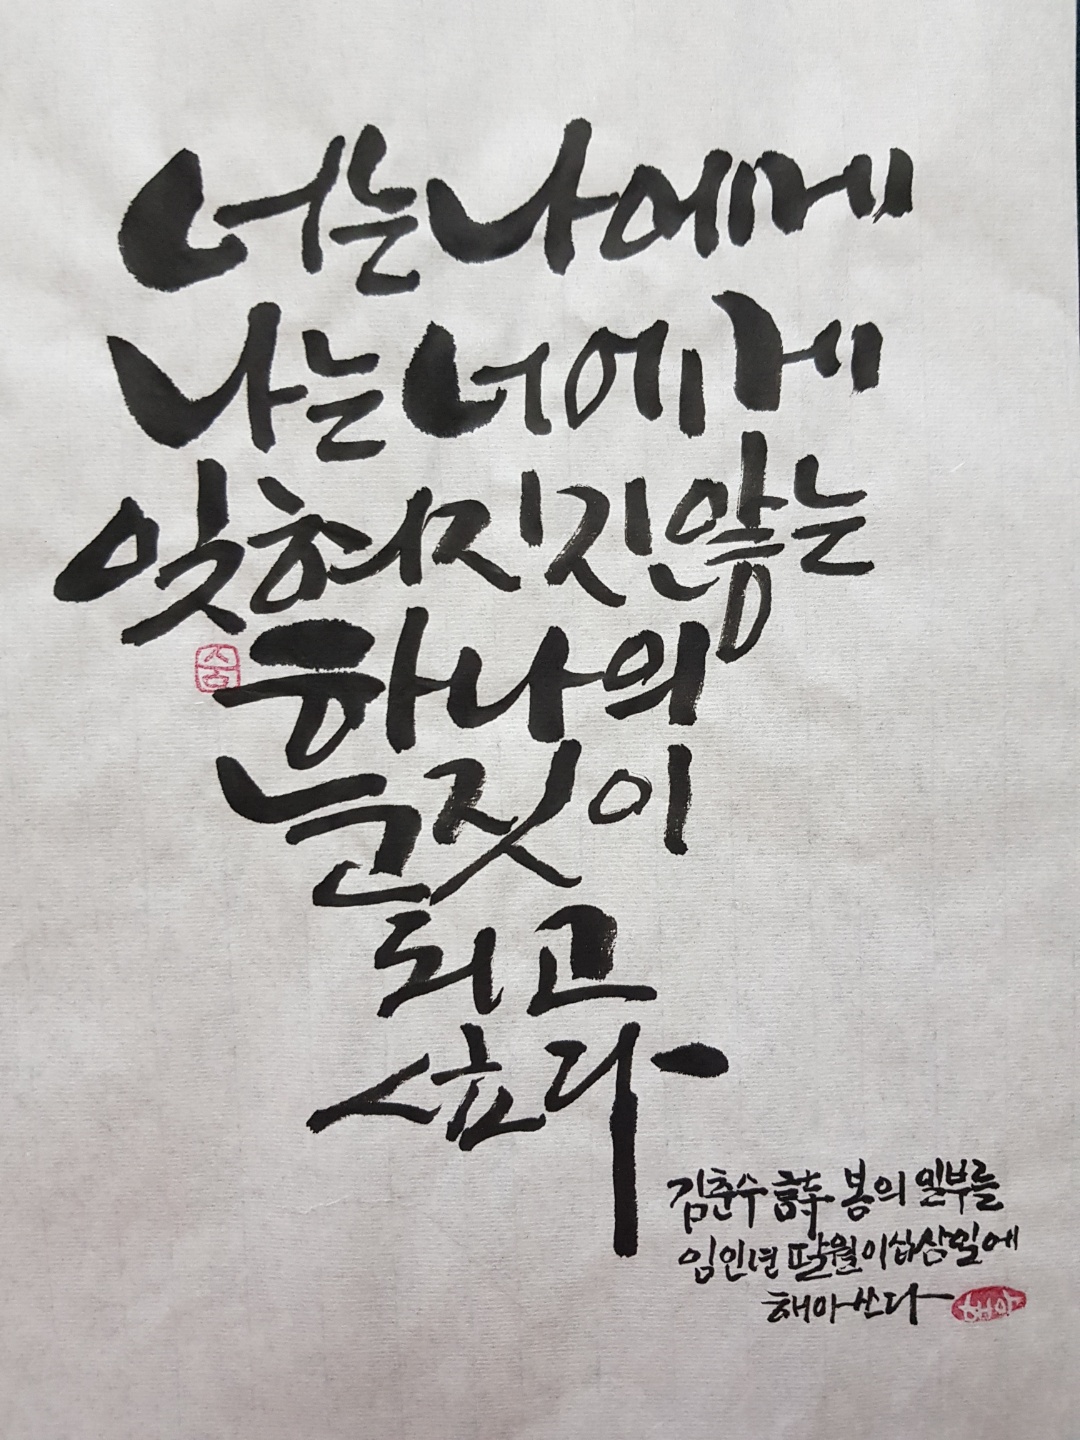 너는 나에게
나는 너에게
잊혀지지 않는
하나의
눈짓이
되고
싶다
김춘수 詩 봄의 일부를
임인년 팔월 이십삼일에
해아 쓰다
해아